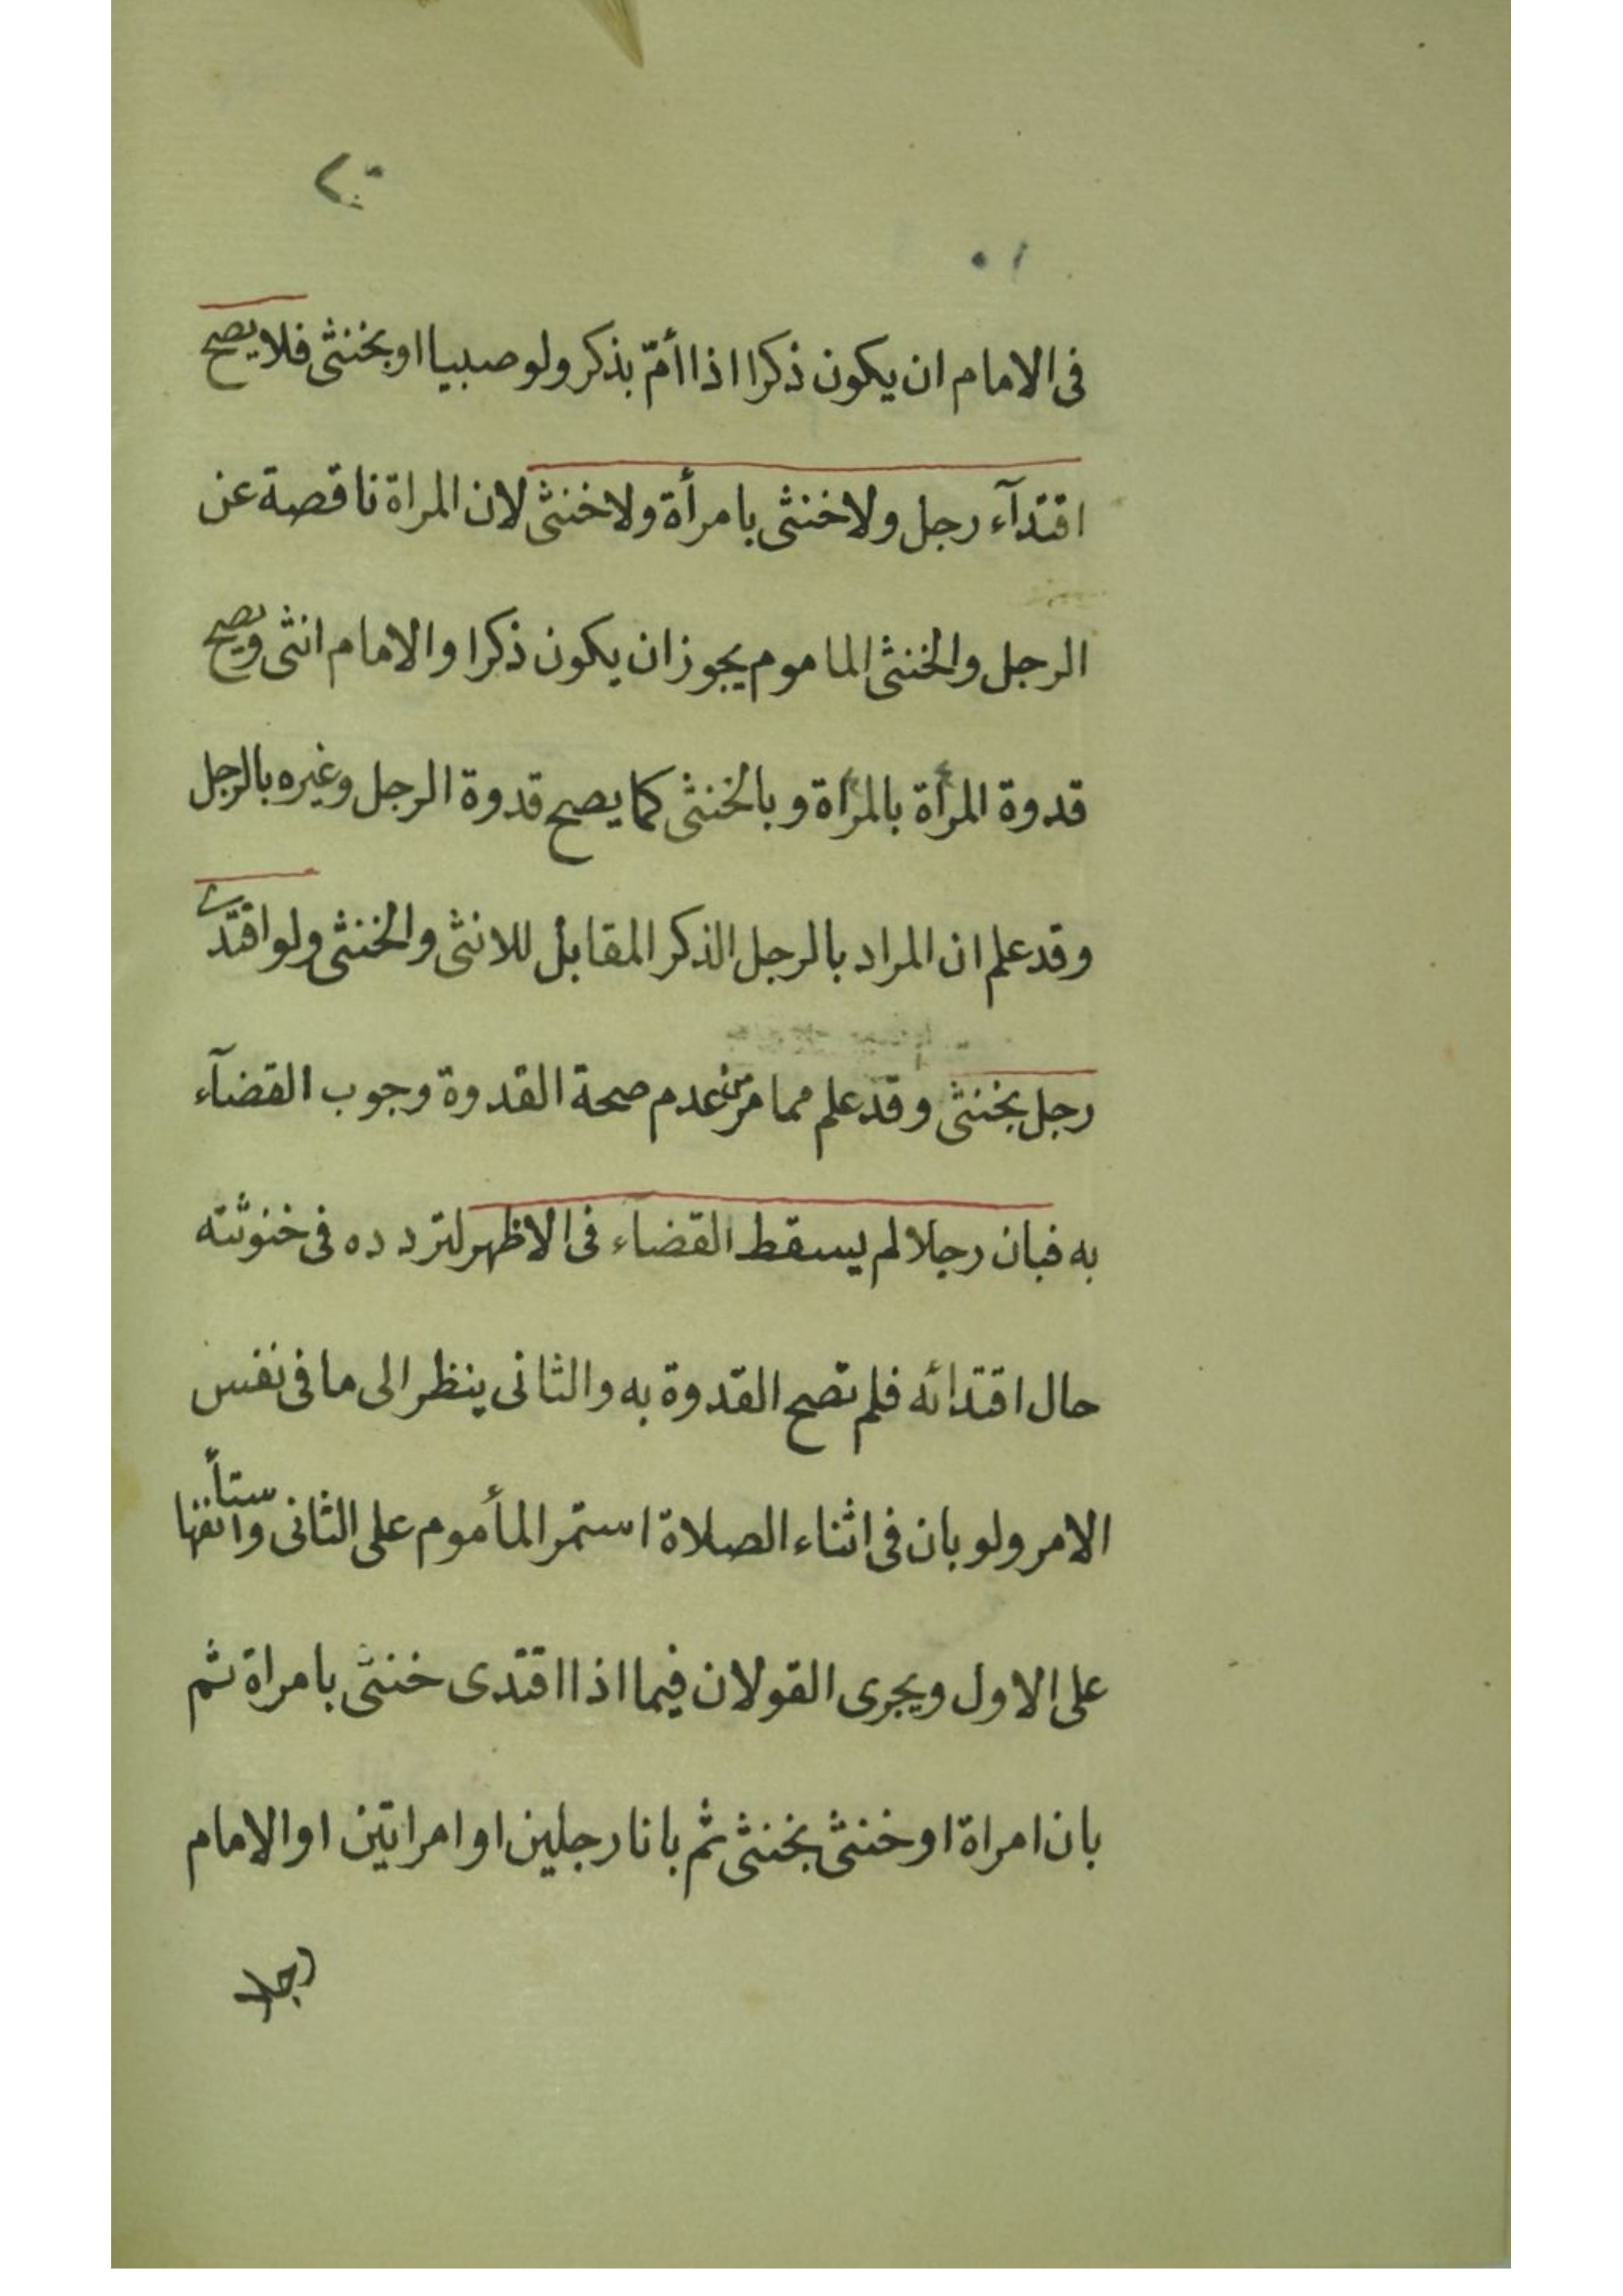 فى الامام ان يكون ذكرا اذا أمّ بذكر ولو صبيا او بخنثى فلا يصح
اقتدآء رجل ولا خنثى بامرأة ولا خنثى لان المراة ناقصة عن
الرجل والخنثى الماموم يجوز ان يكون ذكرا والامام انثى ويصح
قدوة المرأة بالمرأة وبالخنثى كما يصح قدوة الرجل وغيره بالرجل
وقد علم ان المراد بالرجل الذكر المقابل للانثى والخنثى ولو اقتدى
رجل بخنثى وقد علم مما مر من عدم صحة القدوة وجوب القضآء
به فبان رجلا لم يسقط القضاء فى الاظهر لتردده فى خنوثته
حال اقتدائه فلم تصح القدوة به والثانى ينظر الى ما فى نفس
الامر ولو بان فى اثناء الصلاة استمر المأموم على الثانى واستأنفها
على الاول ويجرى القولان فيما اذا اقتدى خنثى بامراة ثم
بان امراة او خنثى بخنثى ثم بانا رجلين او امراتين او الامام
رجلا